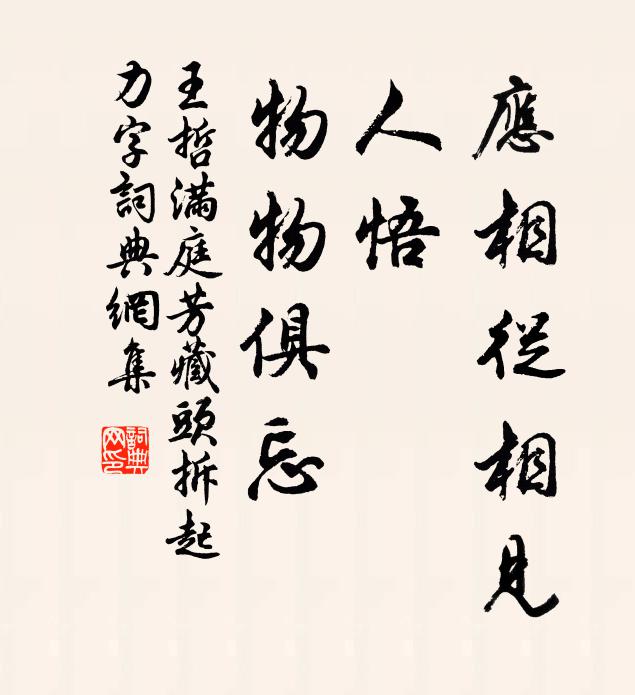 應相從相見
人悟
物物俱忘
王哲满庭芳藏頭拆起
力字詞典網集
詞典
网印